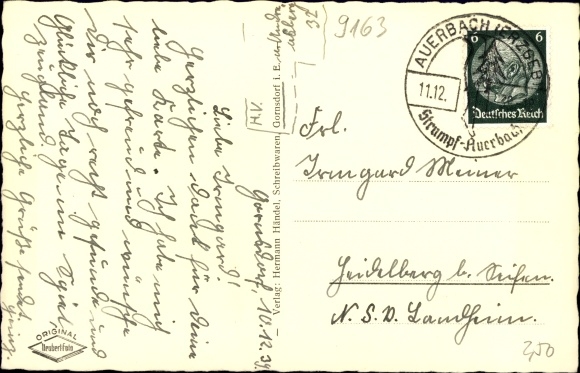 Gornsdorf, 10.12.34
Liebe Irmgard!
Herzlichen Dank für deine
liebe Karte. Ich habe mich
sehr gefreut und wünsche
dir noch recht gesunde und
glückliche Tage im Spiel-
zeugland.
Herzliche Grüße sendet
ORIGINAL
Neubert-Foto
– Verlag: Hermann Händel, Schreibwaren, Gornsdorf i. E.
H.V.
9163
AUERBACH (ERZGEB)
11.12.
Strumpf-Auerbach
6 6
Deutsches Reich
Frl.
Irmgard Meiner
Heidelberg b. Seiffen.
N. S. V. Landheim.
2,50